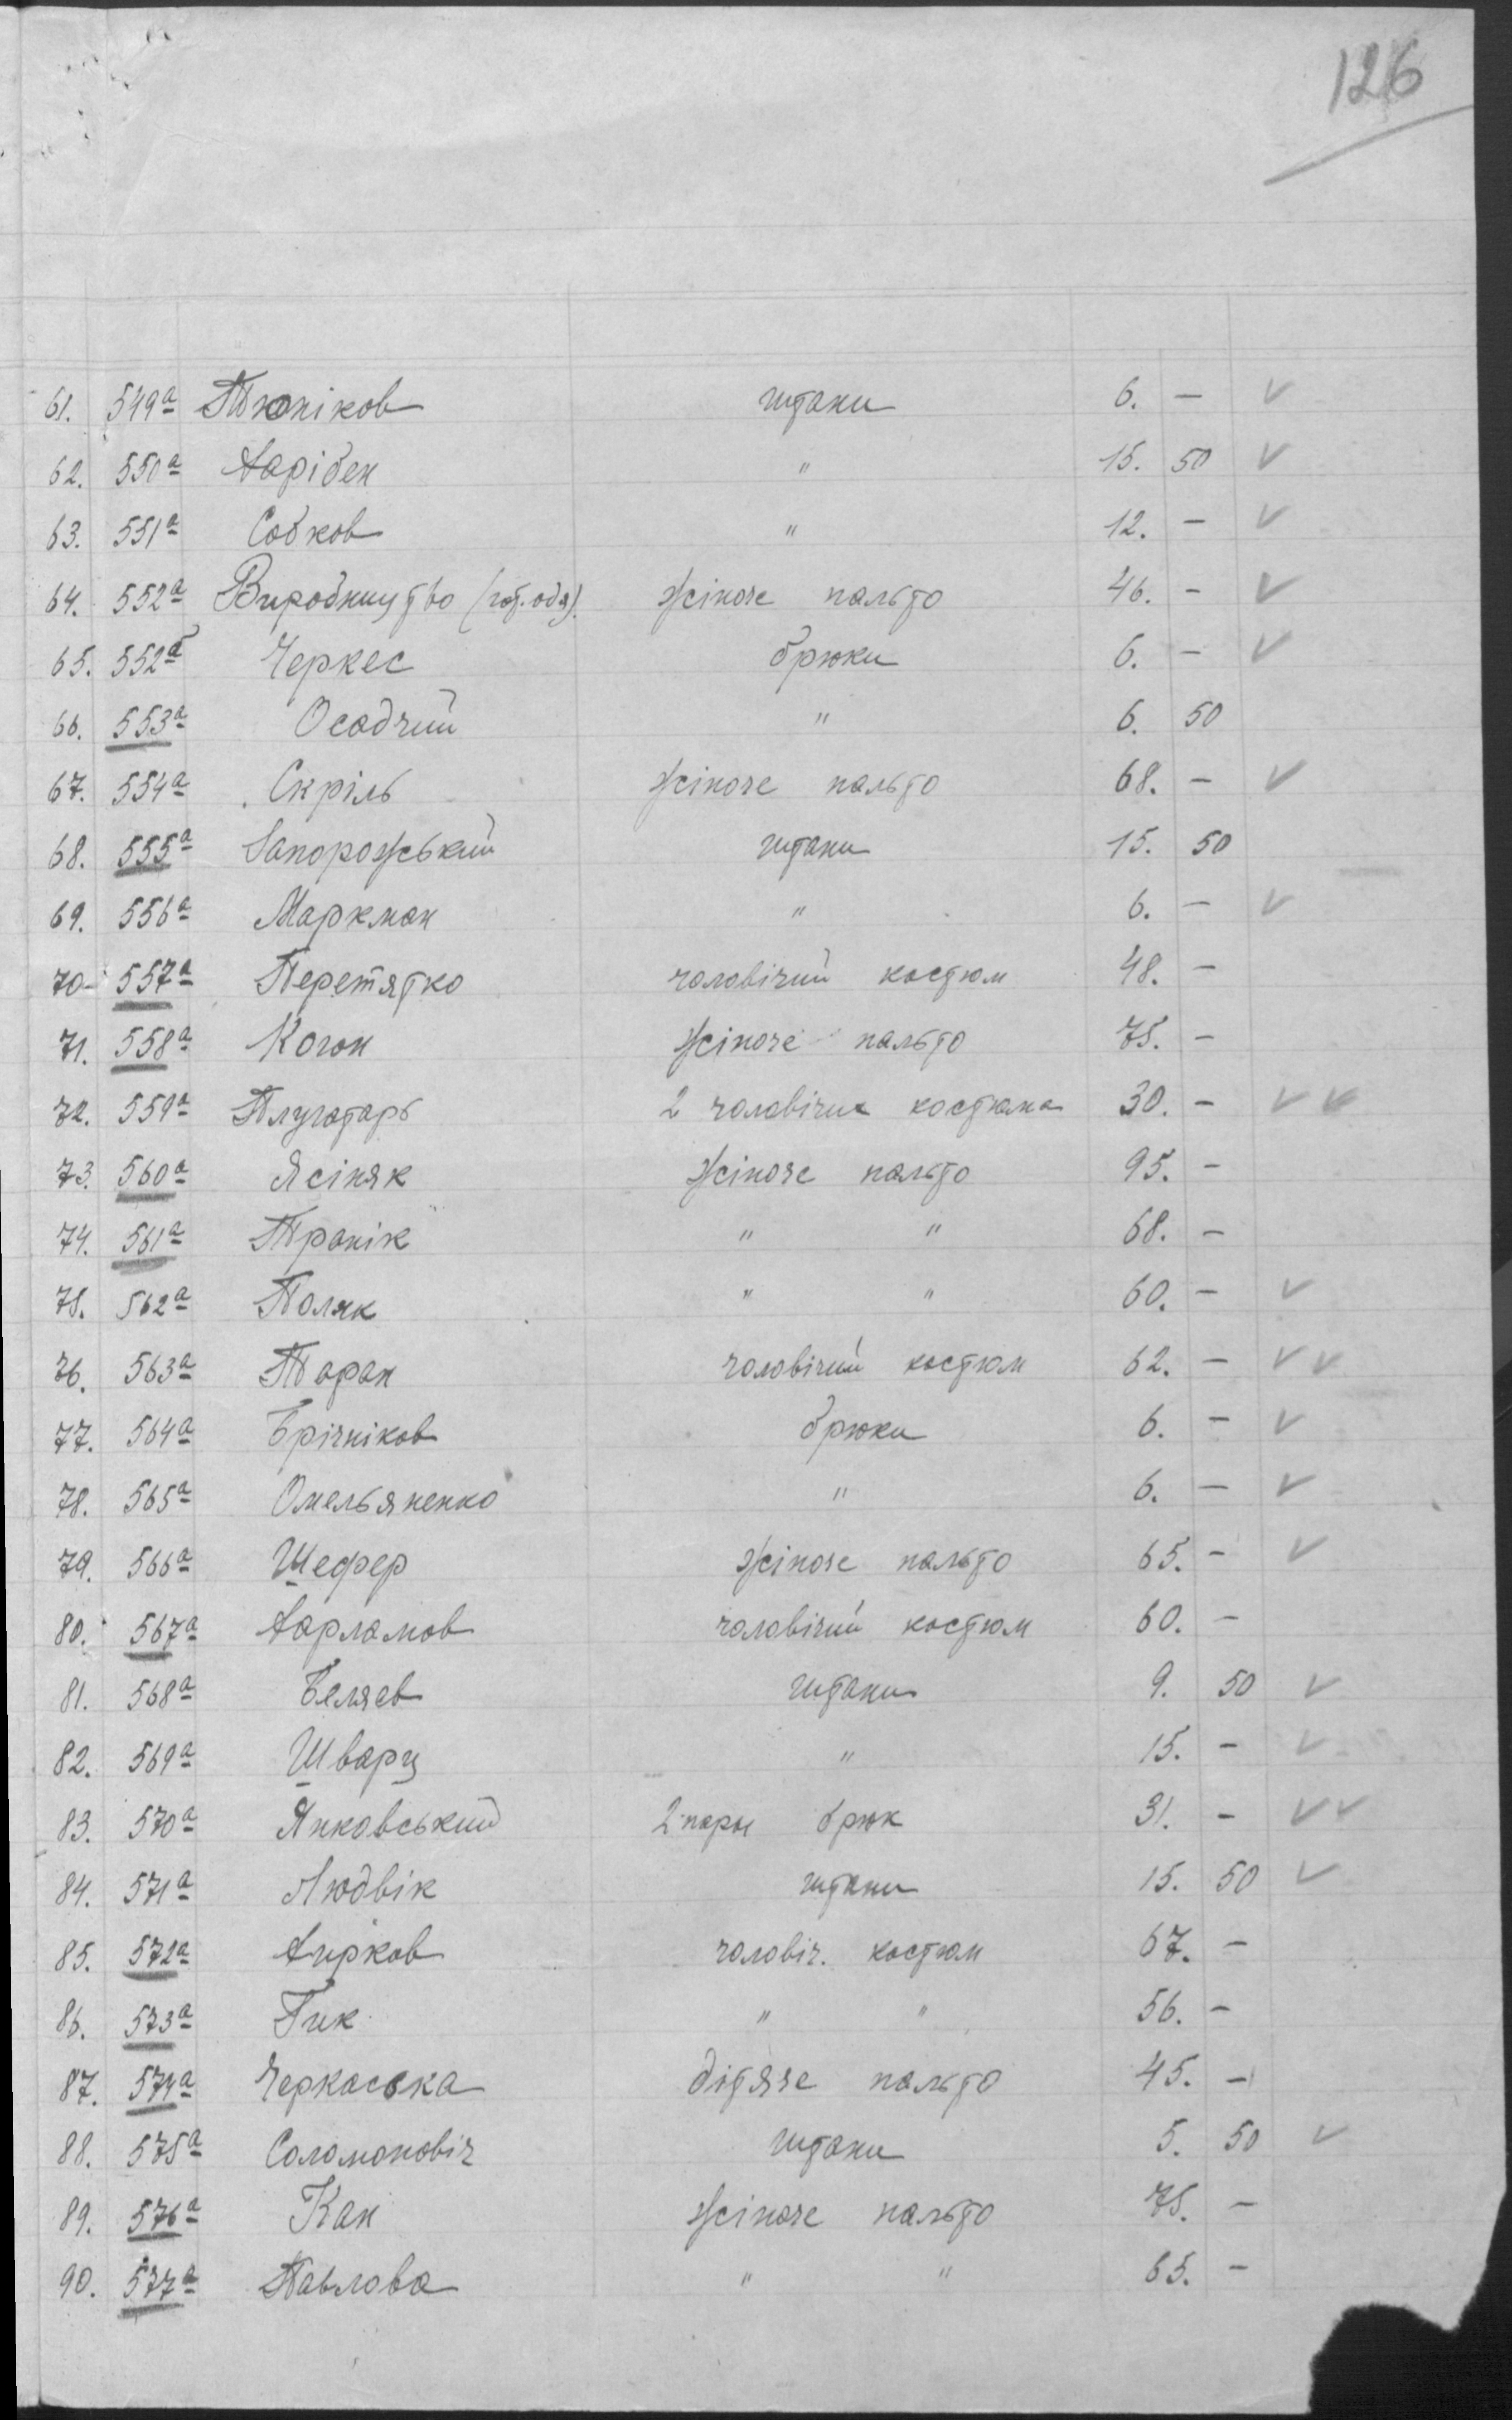 126
61. 549а Тюніков штани 6. — ✓
62. 550а Харібен " 15. 50 ✓
63. 551а Собков " 12. — ✓
64. 552а Виробництво (гот. одя). жіноче пальто 46. — ✓
65. 552б Черкес брюки 6. — ✓
66. 553а Осадчий " 6. 50
67. 554а Скріль жіноче пальто 68. — ✓
68. 555а Запорожський штани 15. 50
69. 556а Маркман " 6. — ✓
70. 557а Перетятко чоловічий костюм 48. —
71. 558а Коган жіноче пальто 75. —
72. 559а Плугатарь 2 чоловічих костюма 30. — ✓ ✓
73. 560а Ясіняк жіноче пальто 95. —
74. 561а Транік " " 68. —
75. 562а Поляк " " 60. — ✓
76. 563а Таран чоловічий костюм 62. — ✓ ✓
77. 564а Брічніков брюки 6. — ✓
78. 565а Омельяненко " 6. — ✓
79. 566а Шефер жіноче пальто 65. — ✓
80. 567а Харламов чоловічий костюм 60. —
81. 568а Беляев штани 9. 50 ✓
82. 569а Шварц " 15. — ✓
83. 570а Янковський 2 пары брюк 31. — ✓ ✓
84. 571а Людвік штани 15. 50 ✓
85. 572а Хирков чоловіч. костюм 67. —
86. 573а Гик " " 56. —
87. 574а Черкаська дітяче пальто 45. —
88. 575а Соломоновіч штани 5. 50 ✓
89. 576а Кан жіноче пальто 75. —
90. 577а Павлова " " 65. —